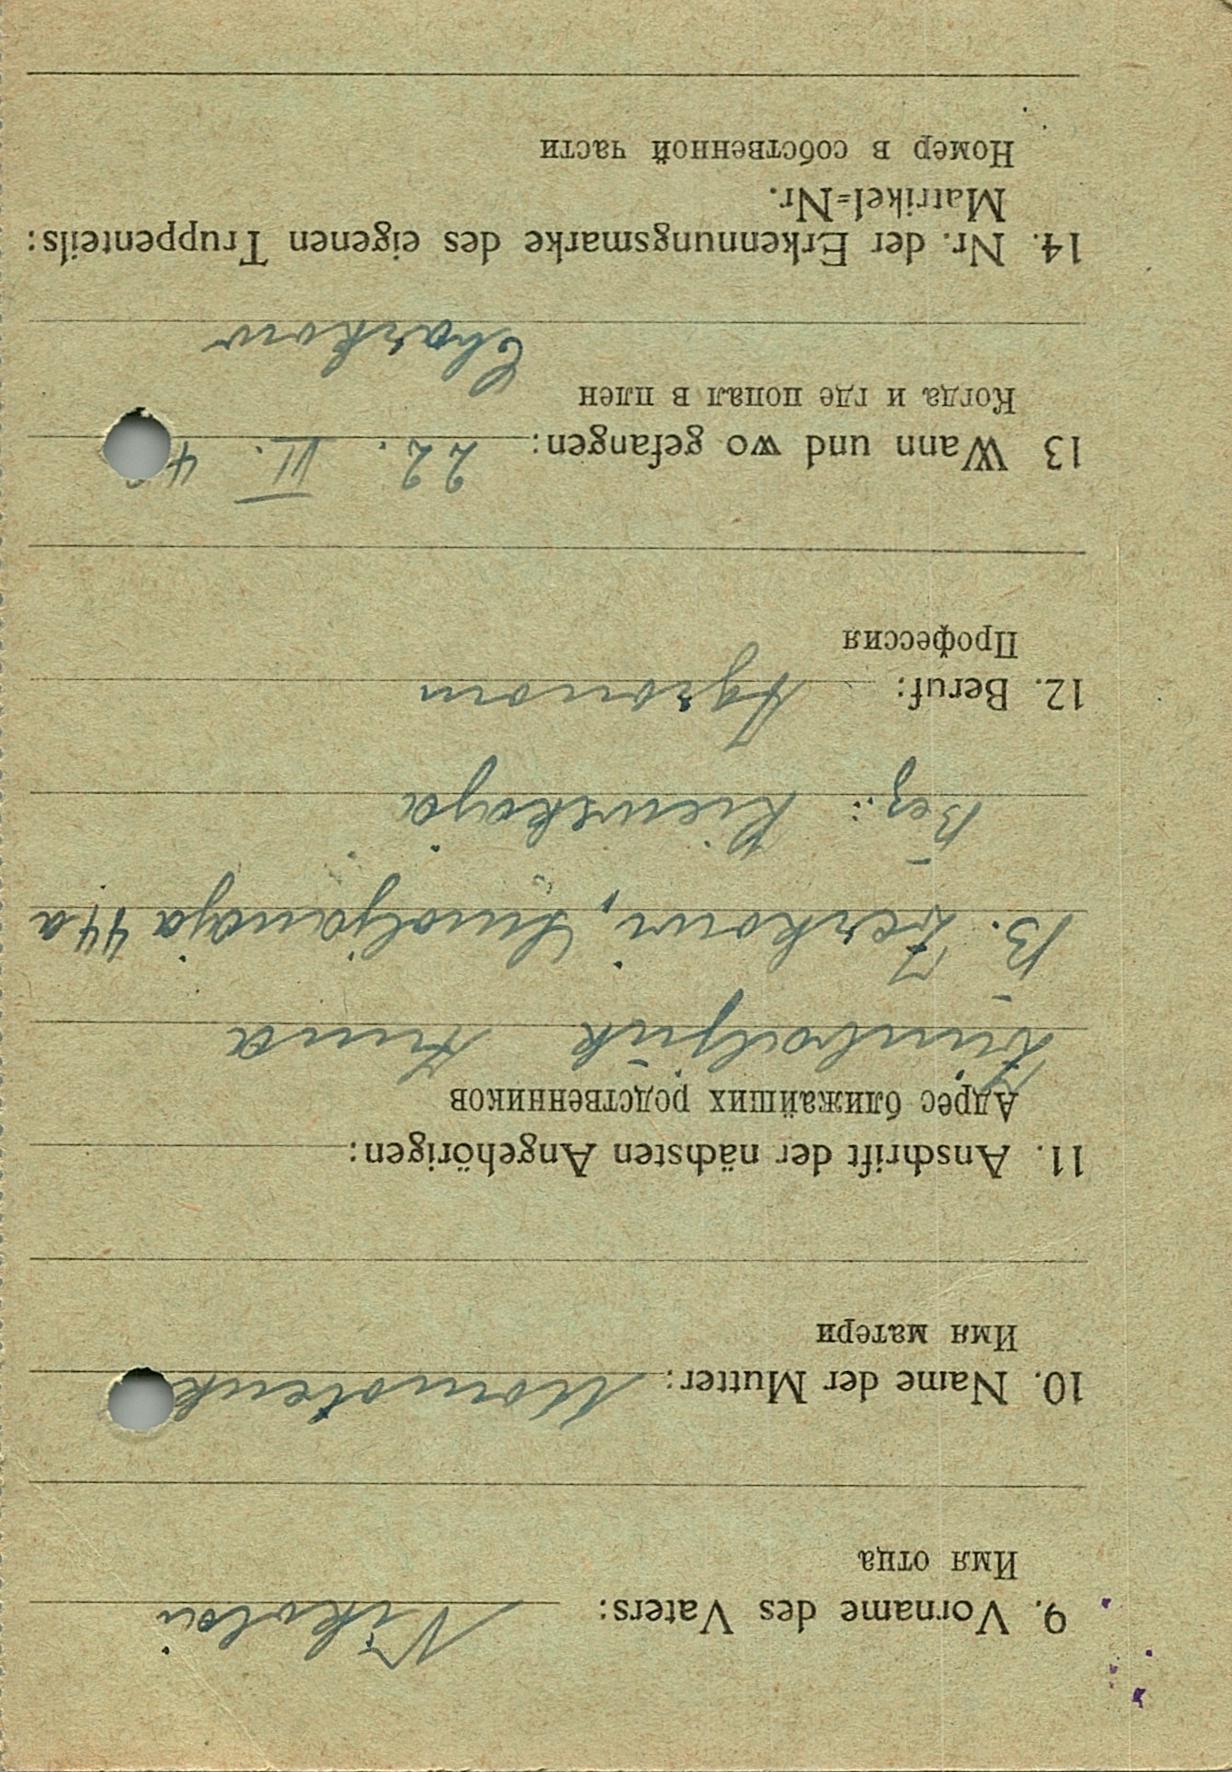 9. Vorname des Vaters: Nikolai
Имя отца
10. Name der Mutter:
Имя матери
11. Anschrift der nächsten Angehörigen:
Адрес ближайших родственников
Anna
B. Zerkowi, Smoljanaja 44a
Bez.: Kiewskaja
12. Beruf: Agronom
Профессия
13 Wann und wo gefangen: 22. II. 4
Когда и где попал в плен
Charkow
14. Nr. der Erkennungsmarke des eigenen Truppenteils:
Matrikel=Nr.
Номер в собственной части